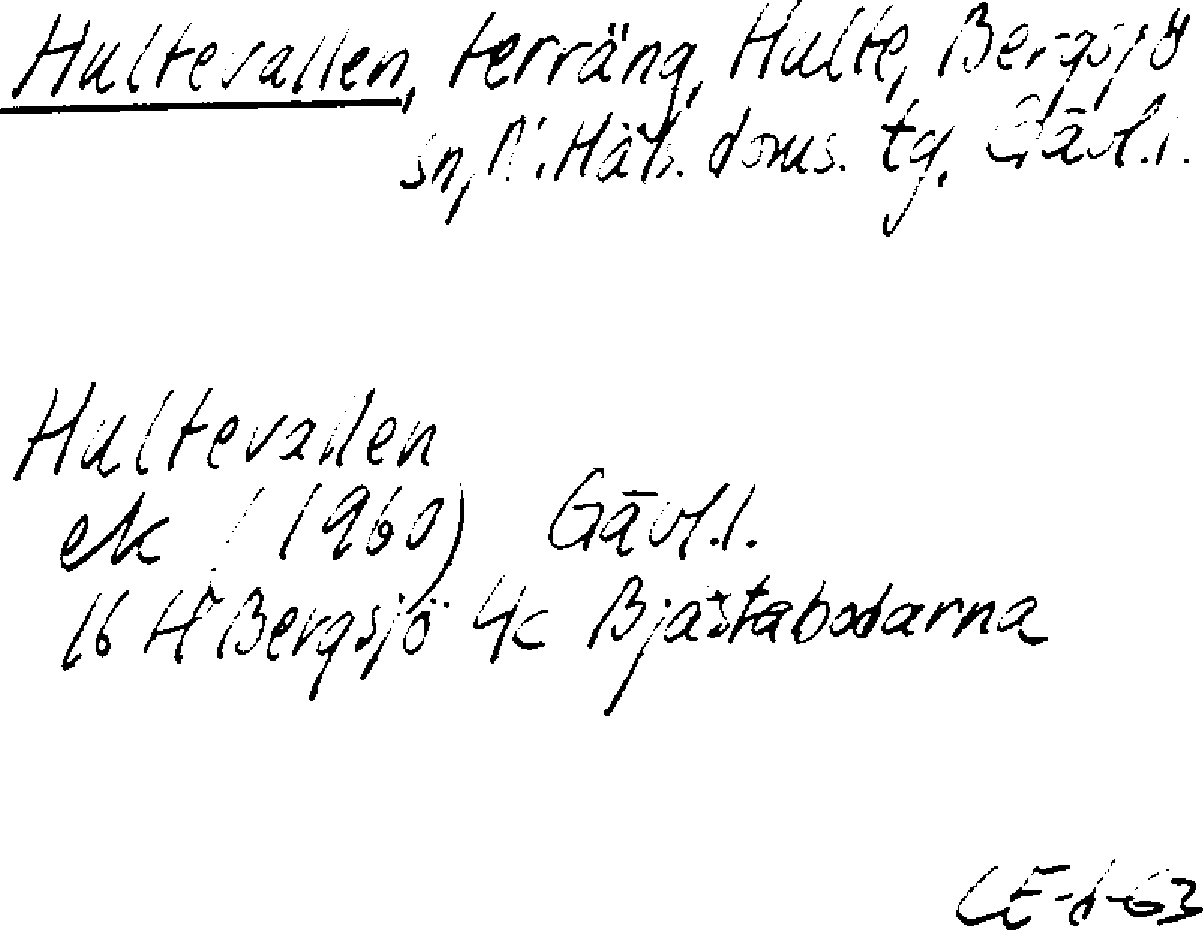 Hultevallen, terräng, Hulte, Bergsjö
sn, N. Häls. doms. tg. Gävl.l.
Hultevallen
ek (1960) Gävl.l.
16 H Bergsjö 4c Bjåstabodarna
CE-d-63